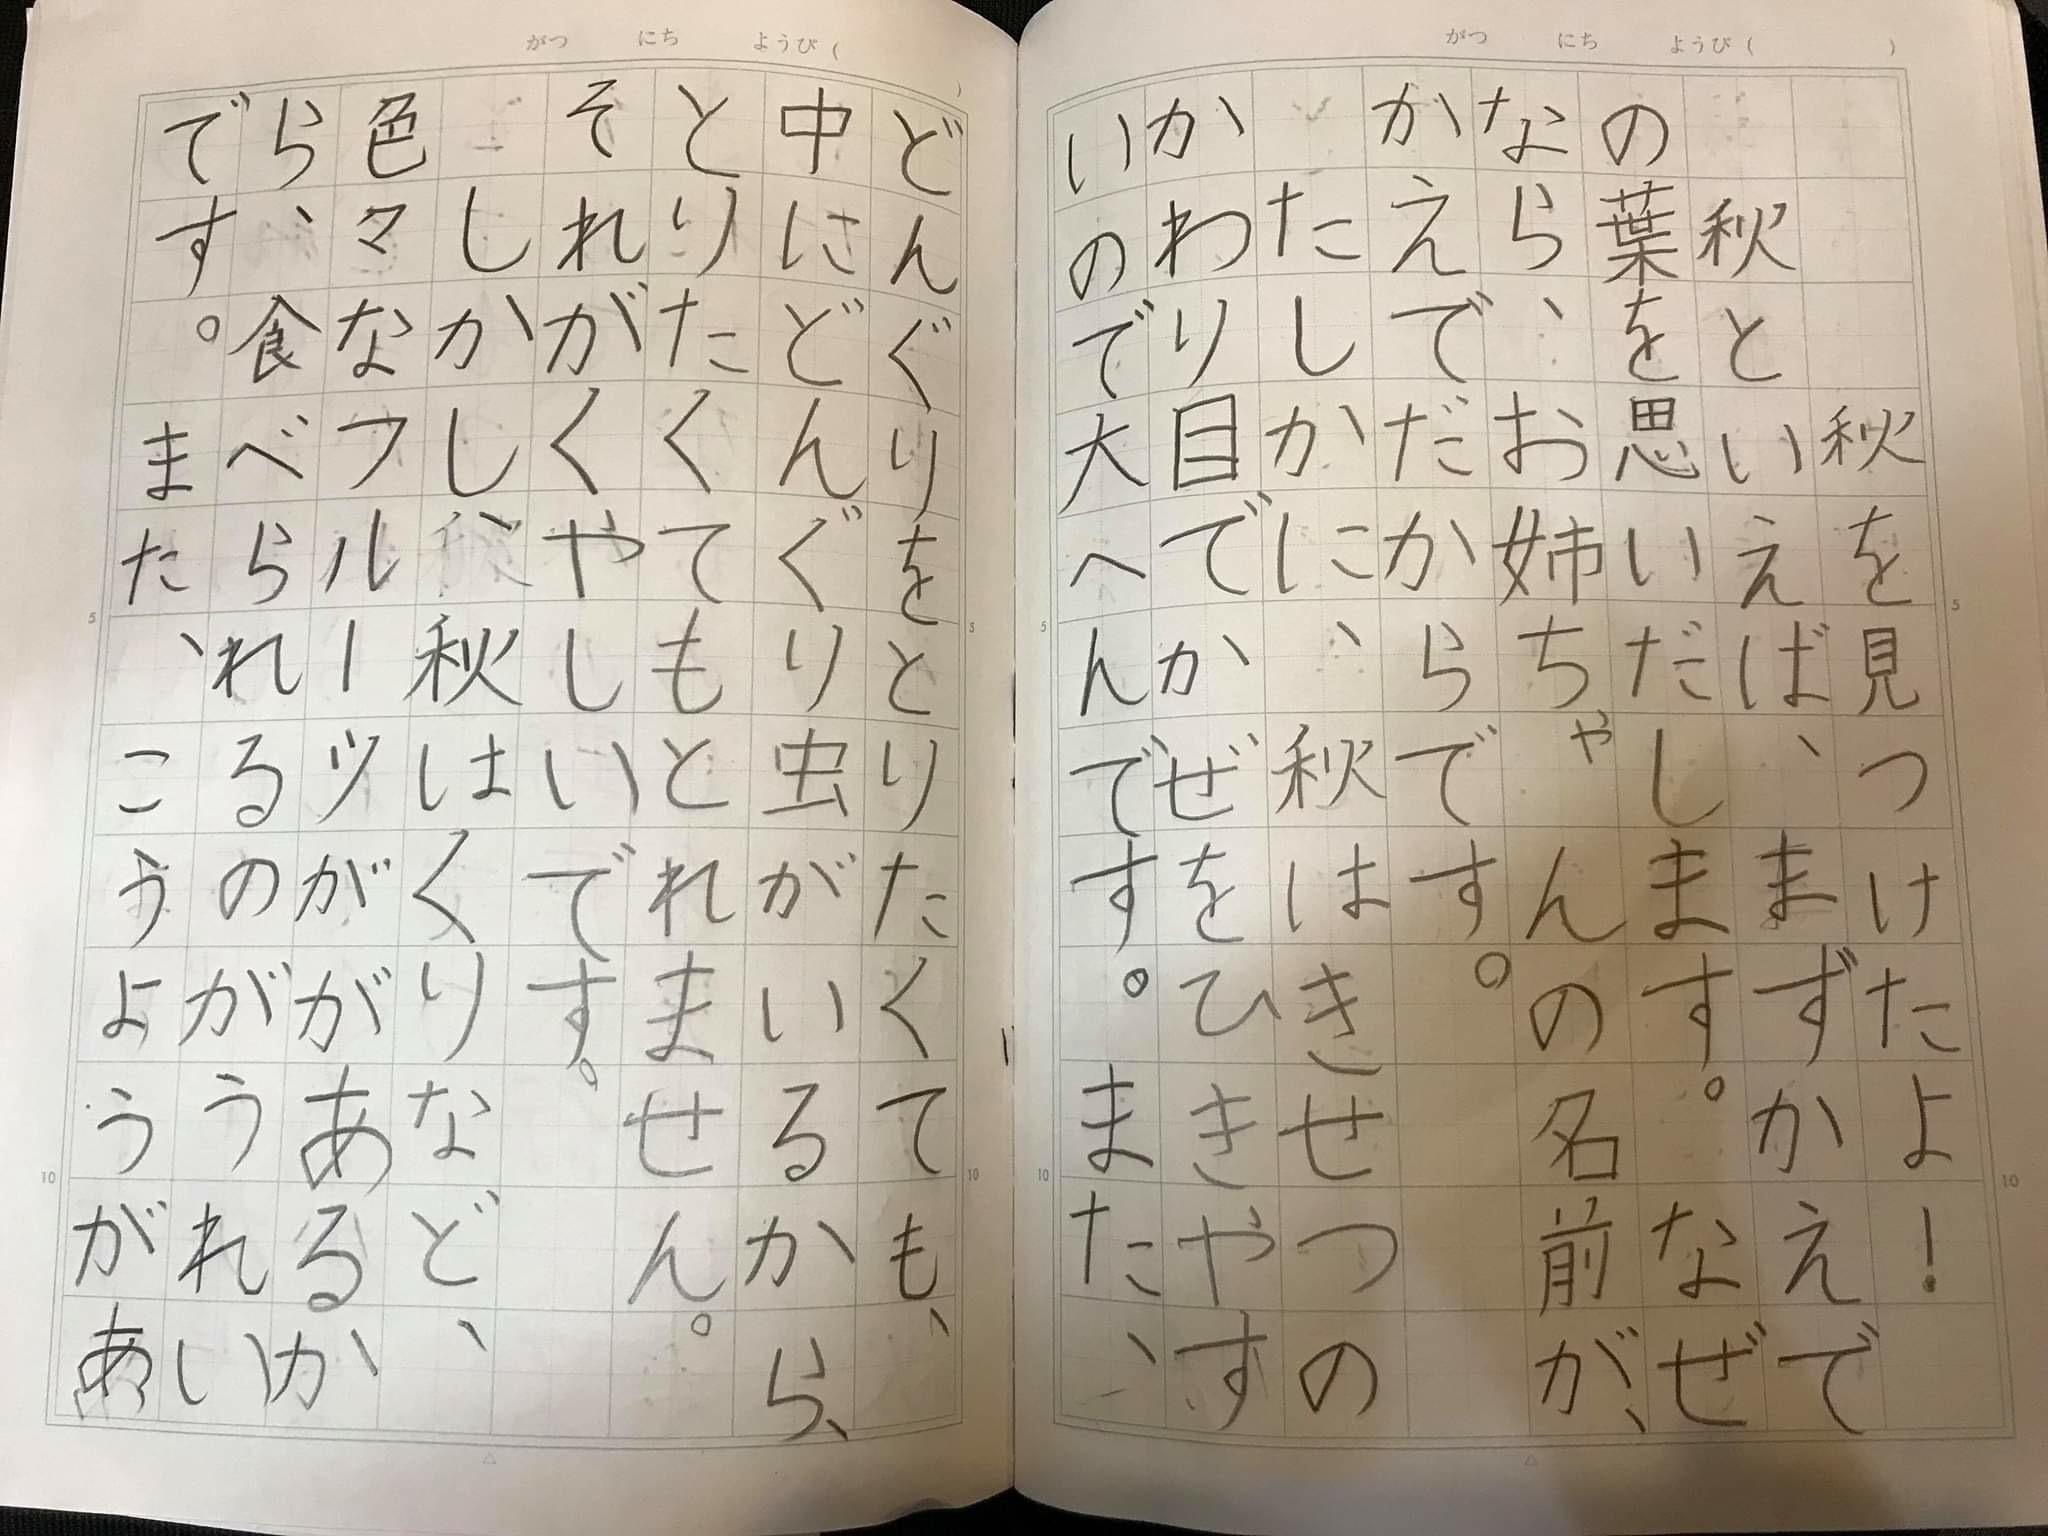 がつ にち ようび( )
秋を見つけたよ!
秋といえば、まずかえで
の葉を思いだします。なぜ
なら、お姉ちゃんの名前が、
かえでだからです。
たしかに、秋はきせつの
かわり目でかぜをひきやす
いので大へんです。また、
5
10
5
10
がつ にち ようび( )
どんぐりをとりたくても、
中にどんぐり虫がいるから、
とりたくてもとれません。
それがくやしいです。
しかし、秋はくりなど、
色々なフルーツががあるか
ら、食べられるのがうれい
です。また、こうようがあ
5
10
5
10